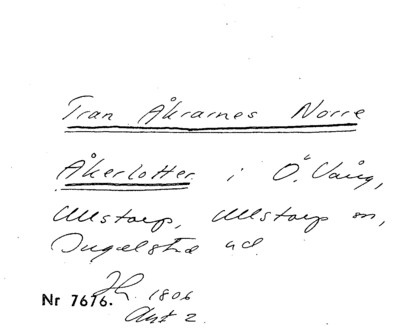 Tran Åkrarnes Norre
Åkerlotter i Ö. Vång,
Ullstorp, Ullstorp sn,
Ingelsta hd.
Nr 7676. 1806
Akt 2.